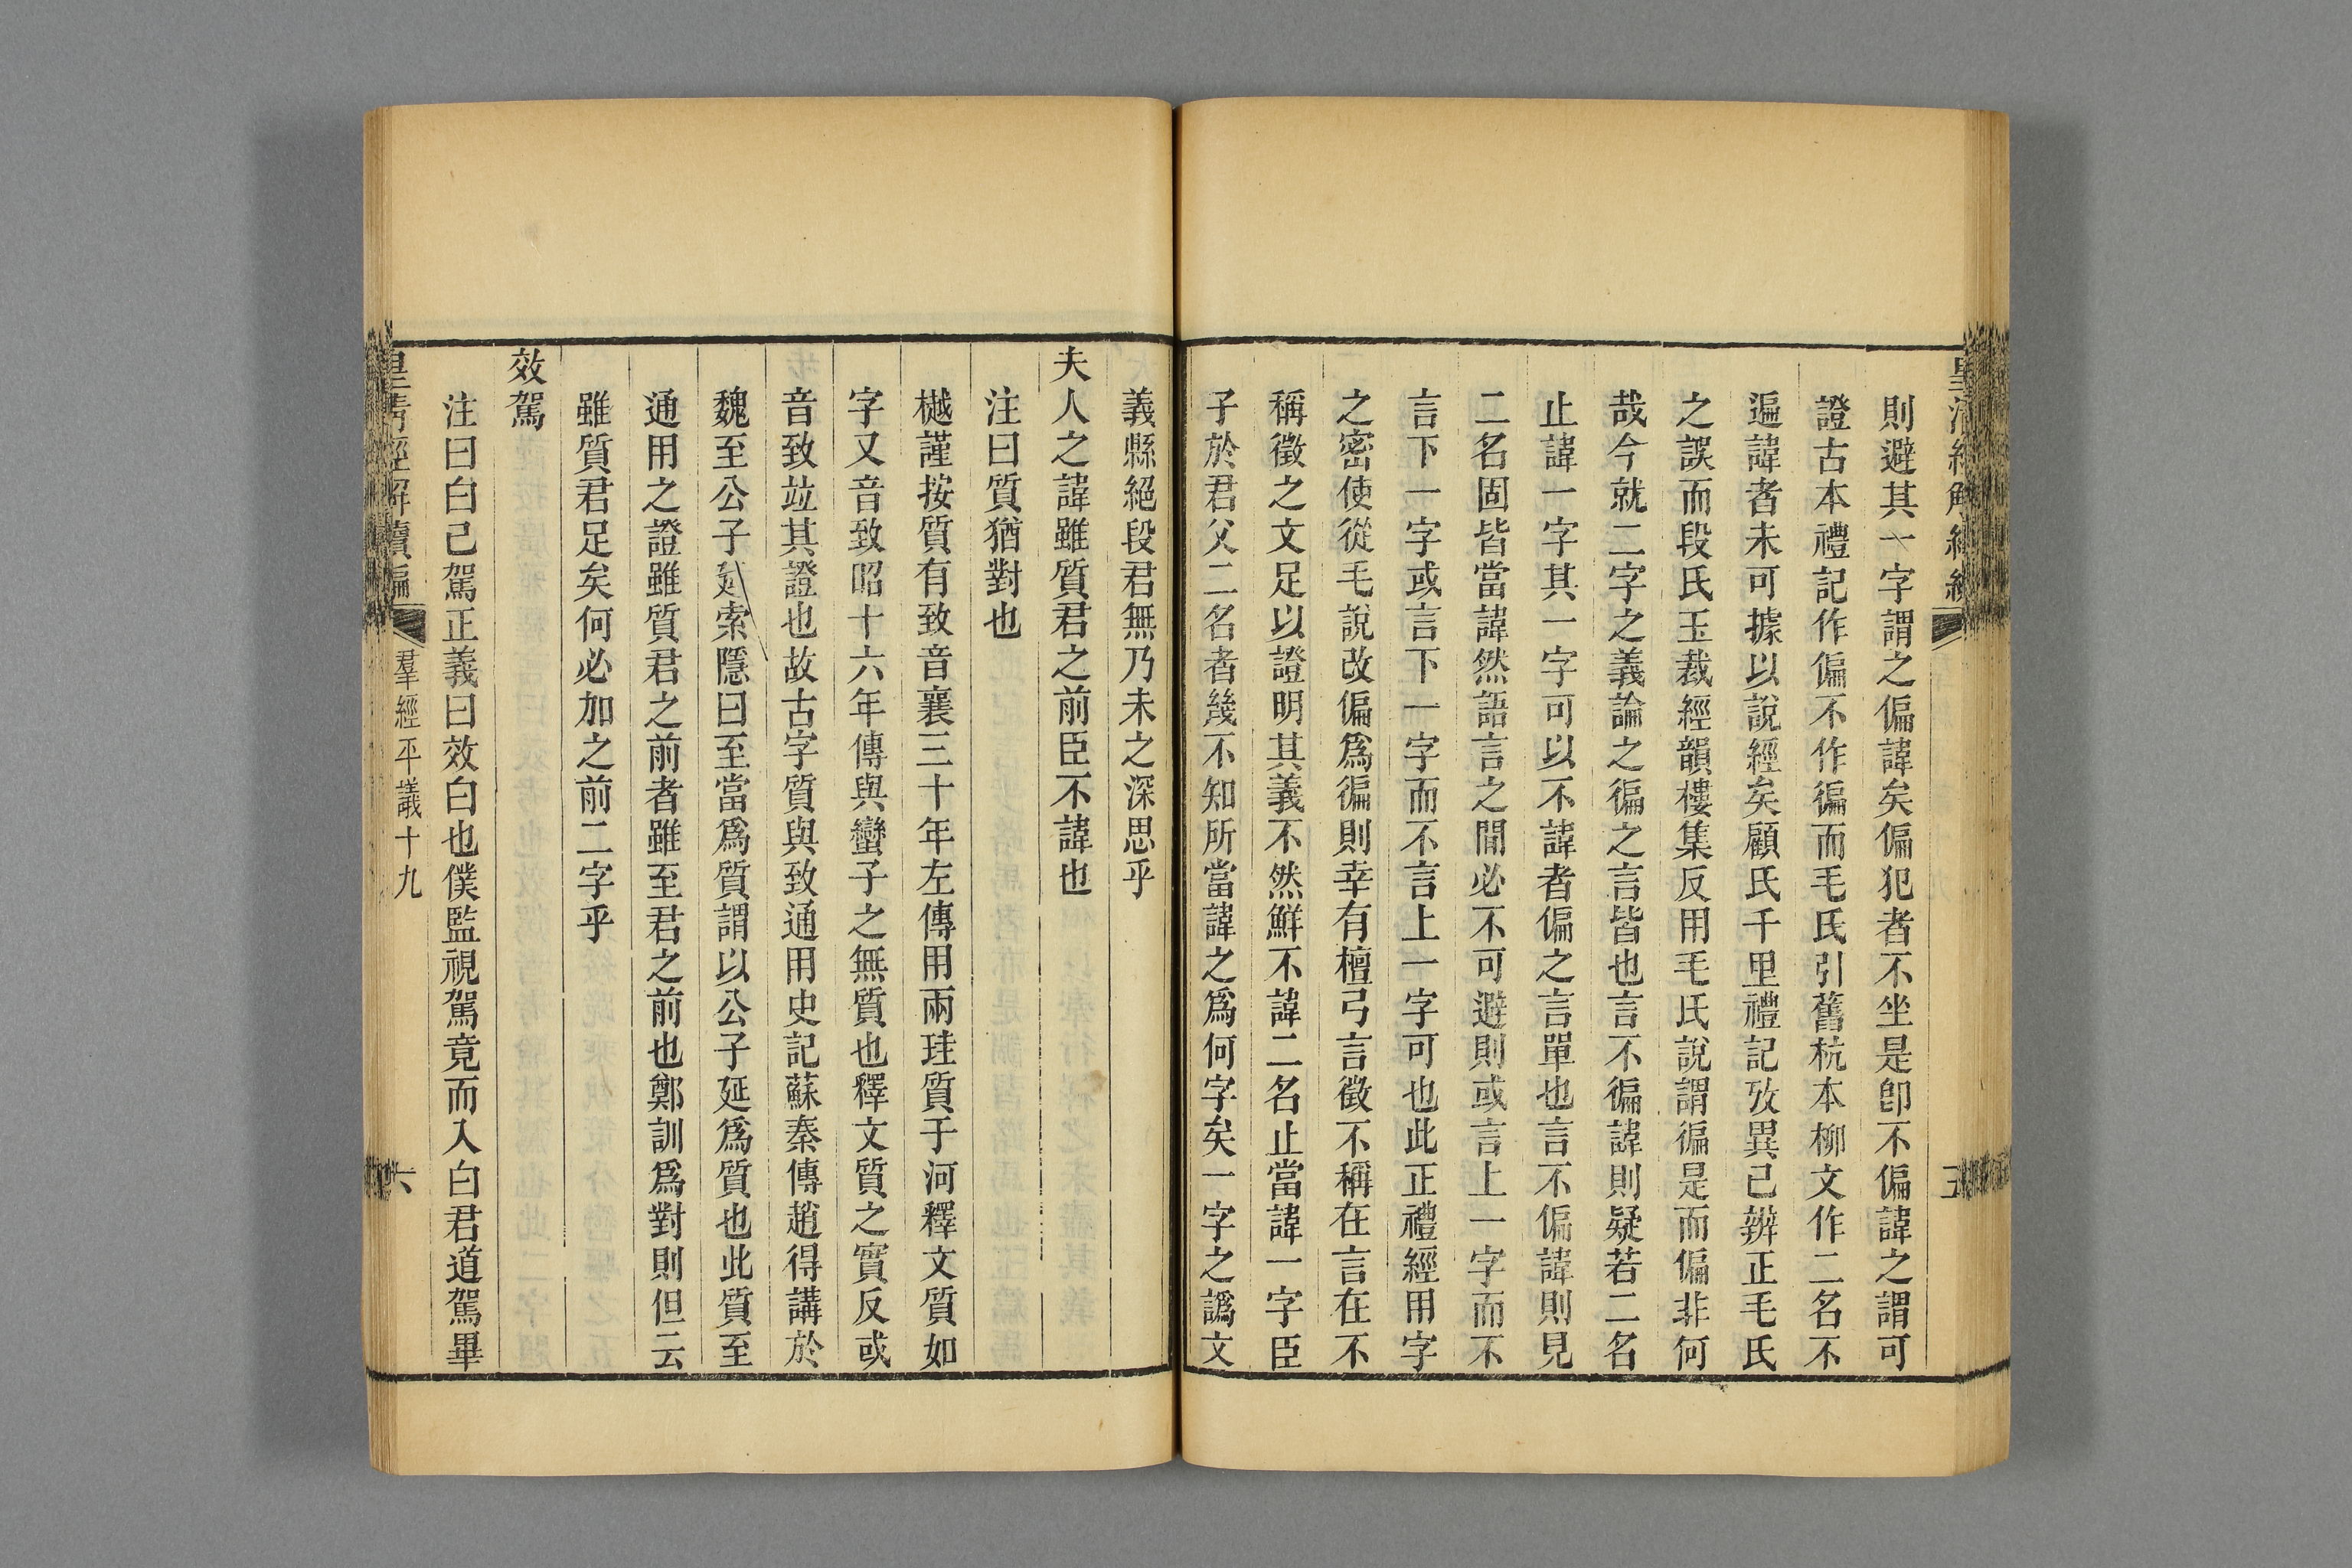 則避其一字謂之偏諱矣偏犯者不坐是卽不偏諱之謂可
證古本禮記作偏不作徧而毛氏引舊杭本柳文作二名不
遍諱者未可據以說經矣顧氏千里禮記攷異己辨正毛氏
之誤而段氏玉裁經韻樓集反用毛氏說謂徧是而偏非何
哉今就二字之義論之徧之言皆也言不徧諱則疑若二名
止諱一字其一字可以不諱者偏之言單也言不偏諱則見
二名固皆當諱然語言之間必不可避則或言上一字而不
言下一字或言下一字而不言上一字可也此正禮經用字
之密使從毛說改偏爲徧則幸有檀弓言徵不稱在言在不
稱徵之文足以證明其義不然鮮不諱二名止當諱一字臣
子於君父二名者幾不知所當諱之爲何字矣一字之譌文
義縣絕段君無乃未之深思乎
夫人之諱雖質君之前臣不諱也
注曰質猶對也
樾謹按質有致音襄三十年左傳用兩珪質于河釋文質如
字又音致昭十六年傳與蠻子之無質也釋文質之實反或
音致竝其證也故古字質與致通用史記蘇秦傳趙得講於
魏至公子延索隱曰至當爲質謂以公子延爲質也此質至
通用之證雖質君之前者雖至君之前也鄭訓爲對則但云
雖質君足矣何必加之前二字乎
效駕
注曰白己駕正義曰效白也僕監視駕竟而入白君道駕畢
皇淸經解續編
羣經平議十九
六